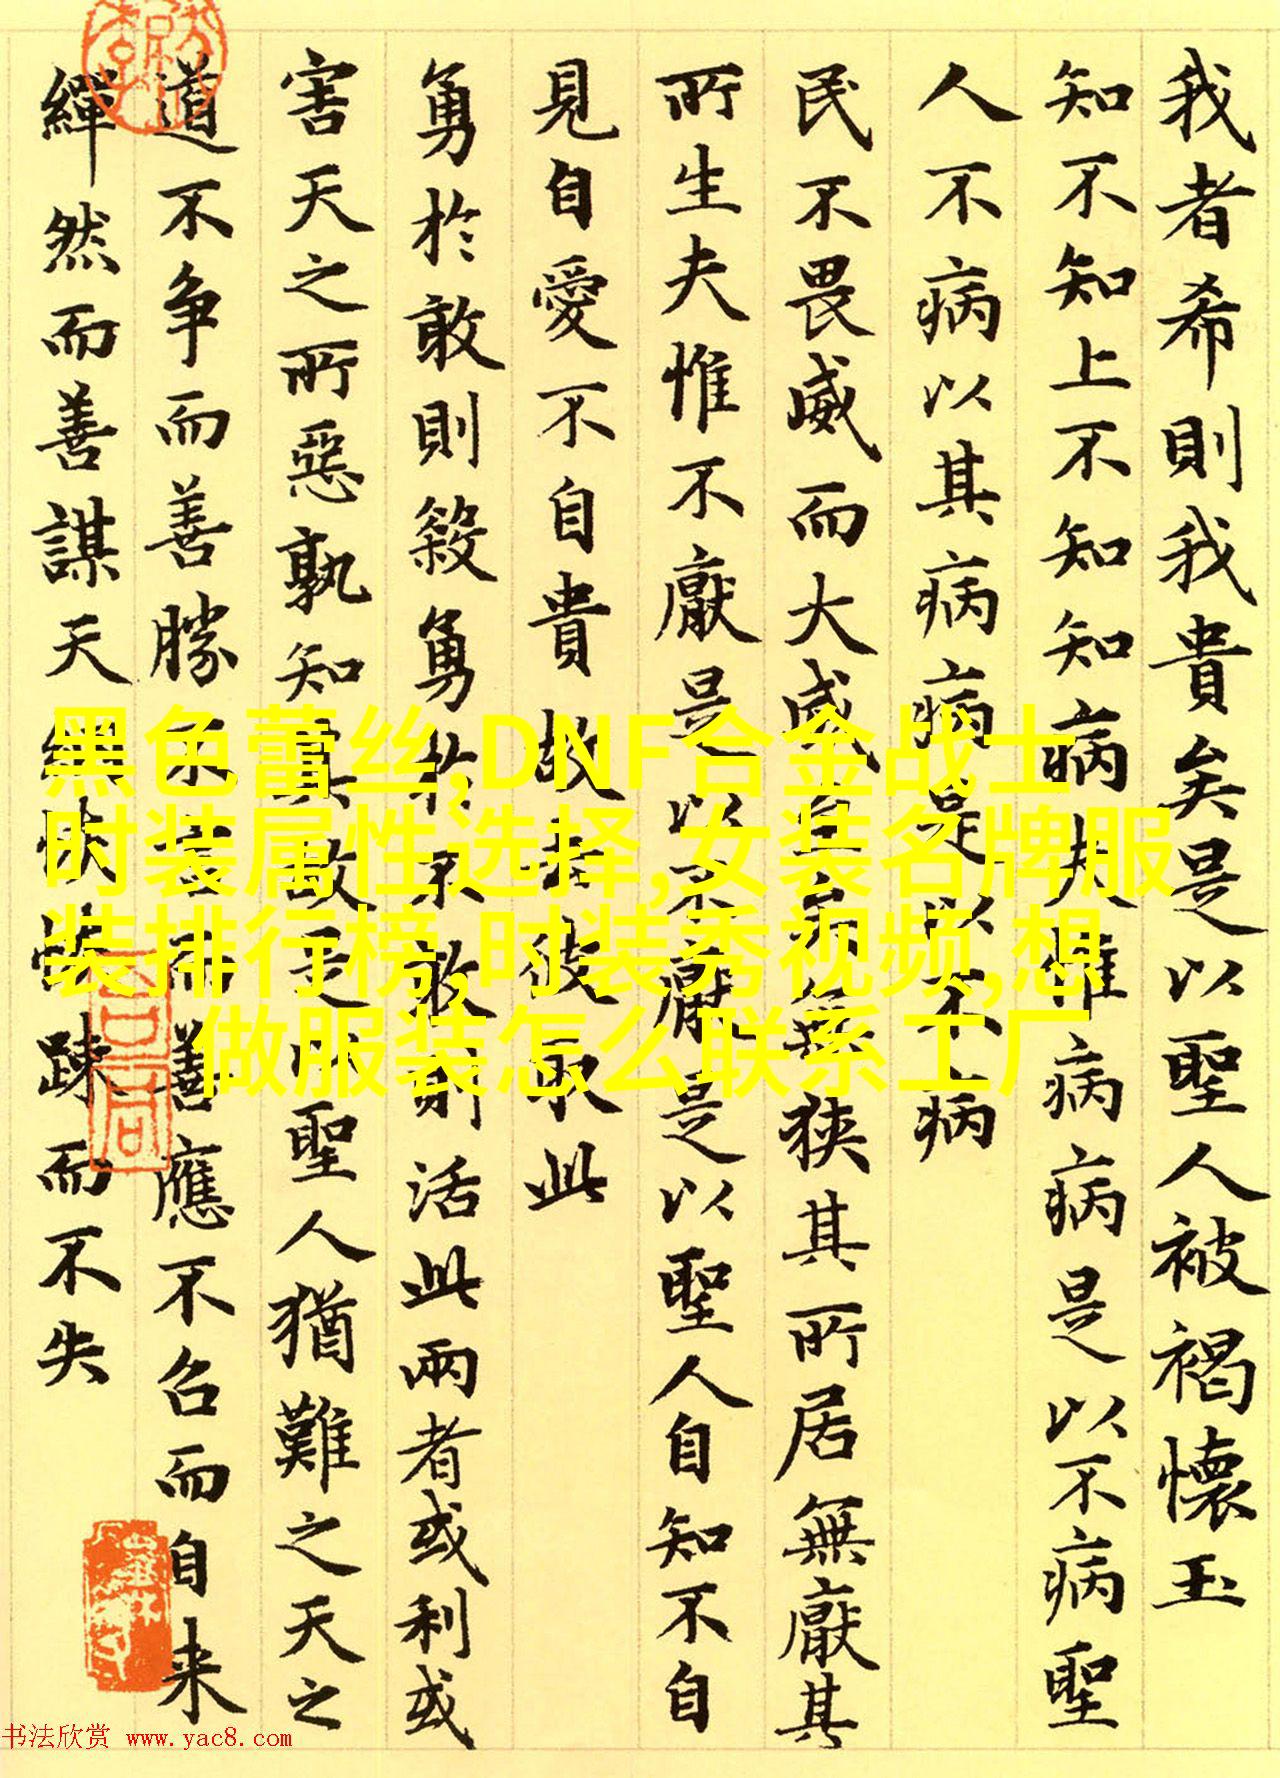 我者希則我貴矣是以聖人被褐懷玉
知不知上不知知病夫惟病病是以不病聖
人不病以其病病是以不病
民不畏威而大威至矣無狹其所居無厭其
所生夫惟不厭是以不厭是以聖人自知不自
見自愛不自貴故去彼取此
勇於敢則殺勇於不敢則活此兩者或利或
害天之所惡孰知其故是以聖人猶難之天之
道不争而善勝不言而善應不召而自来
繟然而善謀天網恢恢踈而不失
黑色蕾丝,DNF合金战士
时装属性选择,女装名牌服
装排行榜,时装秀视频,想
做服装怎么联系工厂
书法欣赏 www.yac8.com